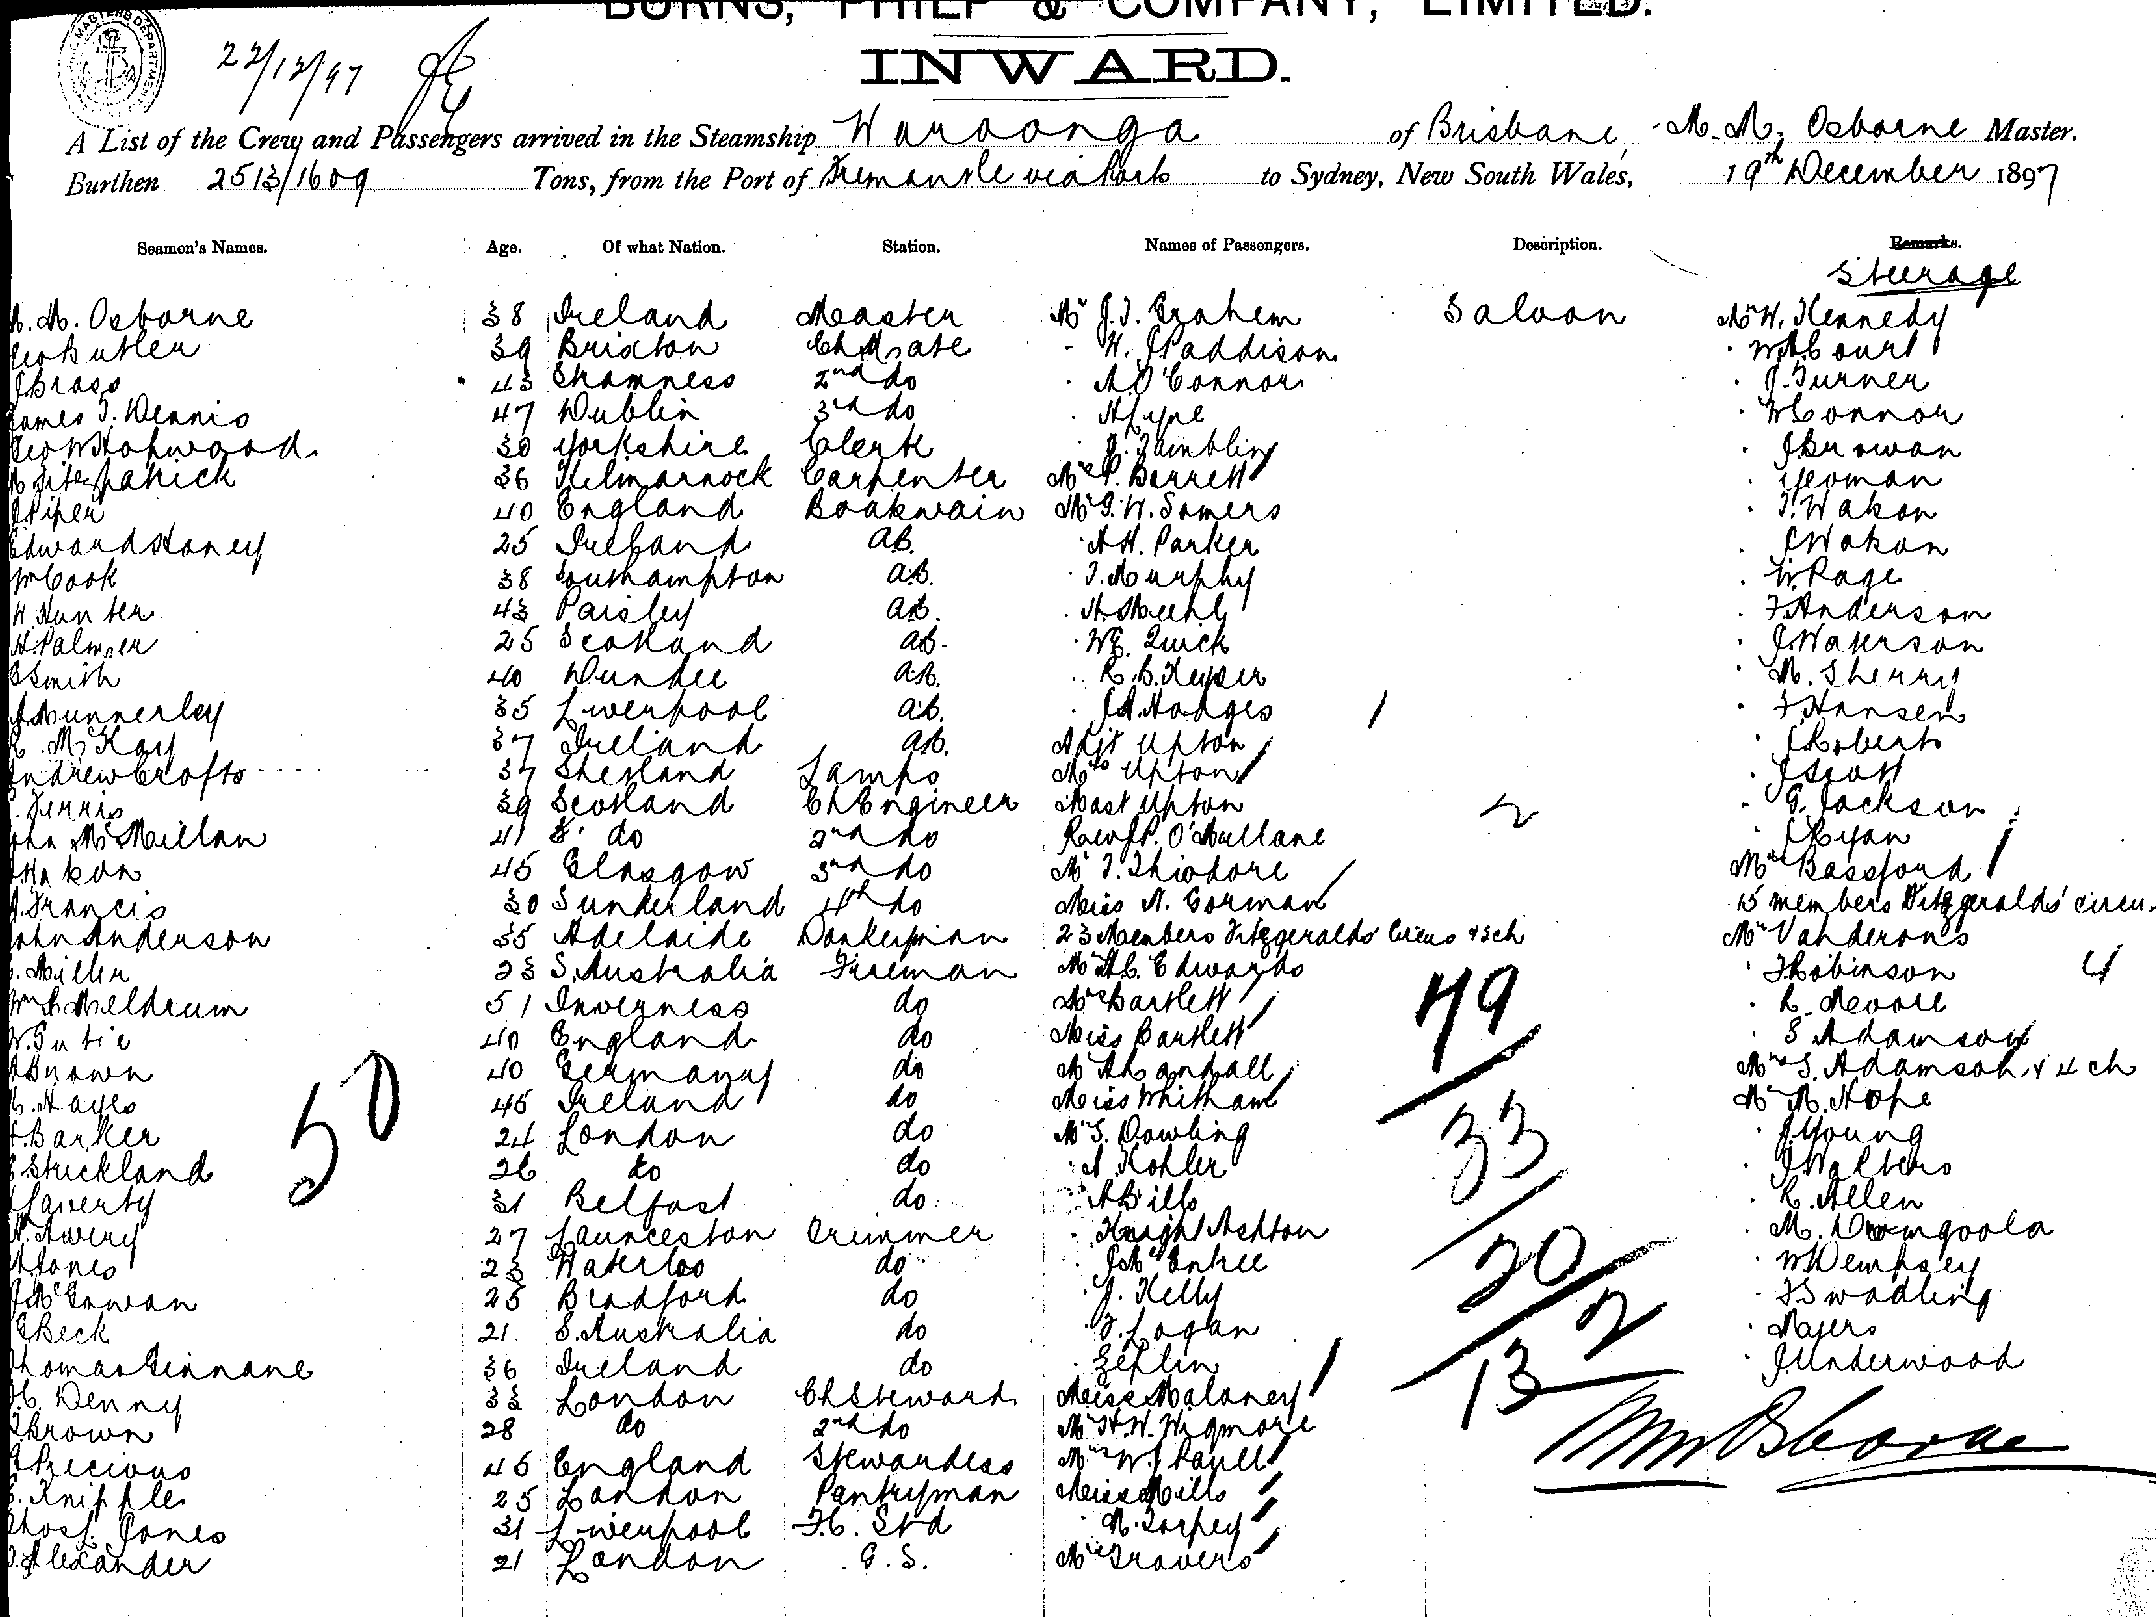 BURNS, PHILP & COMPANY, LIMITED.
MASTERS DEPARTMENT
22/12/97
INWARD.
A List of the Crew and Passengers arrived in the Steamship Waroonga of Brisbane, M. M. Osborne Master.
Burthen 2513/1609 Tons, from the Port of Fremantle via Ports to Sydney, New South Wales, 19th December 1897
Seamen's Names. Age. Of what Nation. Station. Names of Passengers. Description. Remarks.
Steerage
M. M. Osborne 38 Ireland Master Mr J. T. Grahem Saloon Mr H. Kennedy
Geo Butler 39 Brixton Ch Mate " H. J Paddison " W A Court
J Brass 43 2nd do " A O'Connor " J. Turner
James T. Dennis 47 Dublin 3rd do " A Pyne " W Connor
Geo W 30 Yorkshire Clerk " J. Tamblin " J Browan
Fitzpatrick 36 Kilmarnock Carpenter P. Barrett " Yeoman
J Piper 40 England Boatswain Mr G. W. Somers " T. Watson
Edward Stoney 25 Ireland AB. " A H. Parker " J Watson
Wm Cook 38 Southampton AB. " T. Murphy " W Page
H. Hunter 43 Paisley AB. " " F Anderson
H Palmer 25 Scotland AB. " W E. Quick " J Waterson
C Smith 40 Dundee AB. " R. B. Keyser " M. Sherry
J Munnerley 35 Liverpool AB. " J A Hodges " F Hansen
R. McKay 37 Ireland AB. Adjt Upton " J Roberts
Andrew Crofts 37 Shetland Lamps Mrs Upton " J Scott
Ferris 39 Scotland Ch Engineer Mast Upton 2 " G. Jackson
John McMillan 41 do 2nd do Rev J P. O'Mullane " J Ryan
Watson 45 Glasgow 3rd do Mr T. Thiodore Mrs Bassford
J. Francis 30 Sunderland 4th do Miss N. Gorman 15 members Fitzgeralds' circu
John Anderson 35 Adelaide Donkeyman 23 Members Fitzgeralds Circus & 3 ch Mr Vanderons
Miller 23 S. Australia Fireman Mr A C. Edwards " F Robinson 4
Wm S Meldrum 51 Inverness do Mrs Bartlett 49 " R. Moore
W. Gutie 40 England do Miss Bartlett " S Adamson
Brown 40 Germany do Mr A Randall Mrs S. Adamson & 4 ch
C. Hayes 45 Ireland do Miss Whitham Mr M. Hope
50
Barker 24 London do Mr S. Dowling 33 " J Young
Strickland 26 do do " A Kohler " J Walters
Laverty 31 Belfast do " A Bills " R. Allen
Avery 27 Launceston Trimmer " Knight Ashton " M. Doomgoola
A Jones 23 Waterloo do " J McEntree 20 " W Dempsey
J McGowan 25 Bradford do " J. Kelly " F Swadling
G Beck 21 S. Australia do " T. Logan 2 " Majers
Thomas Ginnane 36 Ireland do " Zeplin " J Underwood
C. Denny 33 London Ch Steward Miss Malaney 13
T Brown 28 do 2nd do Mr H. W. Wigmore M M Osborne
Precious 45 England Stewardess Mrs W. J Paull
Knipple 25 London Pantryman Miss Mills
Thos J. Jones 31 Liverpool F.C. Std " M. Torpey
Alexander 21 London G. S. Mrs Travers